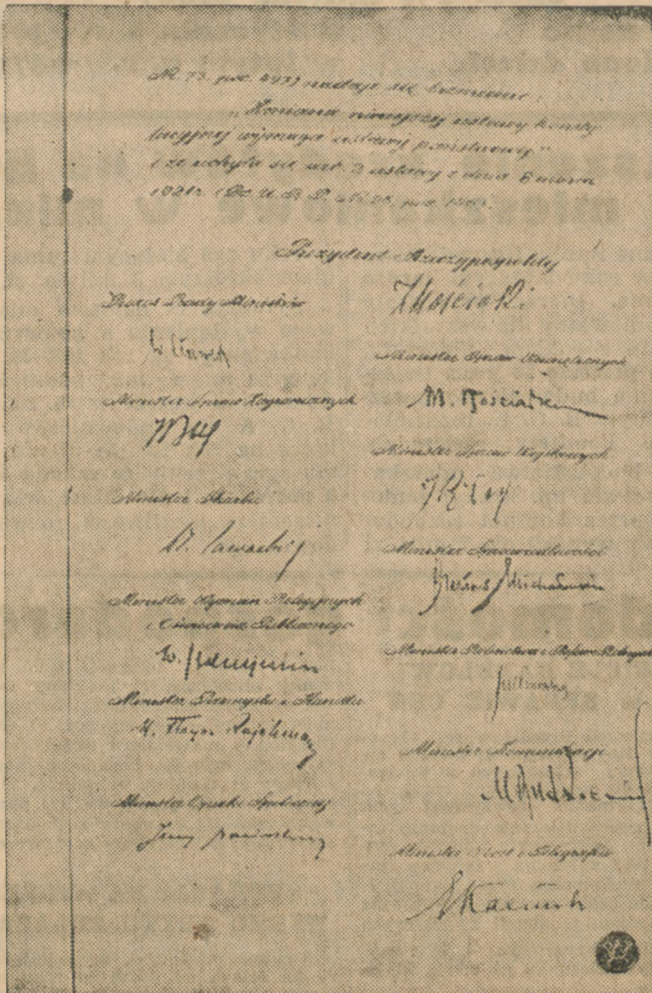 Nr. 73. poz. 497) nadaje się brzmienie:
„Zmiana niniejszej ustawy konsty
tucyjnej wymaga ustawy państwowej"
i że uchyla się art. 2 ustawy z dnia 8 marca
1921 r. (Dz. U. R. P. Nr.
Prezydent Rzeczypospolitej
I Mościcki
Prezes Rady Ministrów
W Sławek
Minister Spraw Wewnętrznych
M. Kościałkowski
Minister Spraw Zagranicznych
Minister Spraw Wojskowych
Minister Skarbu
W. Zawadzki
Minister Sprawiedliwości
Czesław Michałowski
Minister Wyznań Religijnych
i Oświecenia Publicznego
W. Jędrzejewicz
Minister Rolnictwa i Reform Rolnych
Minister Przemysłu i Handlu
H. Floyar Rajchman
Minister Komunikacji
M Butkiewicz
Minister Opieki Społecznej
Jerzy Paciorkowski
Minister Poczt i Telegrafów
E Kaliński